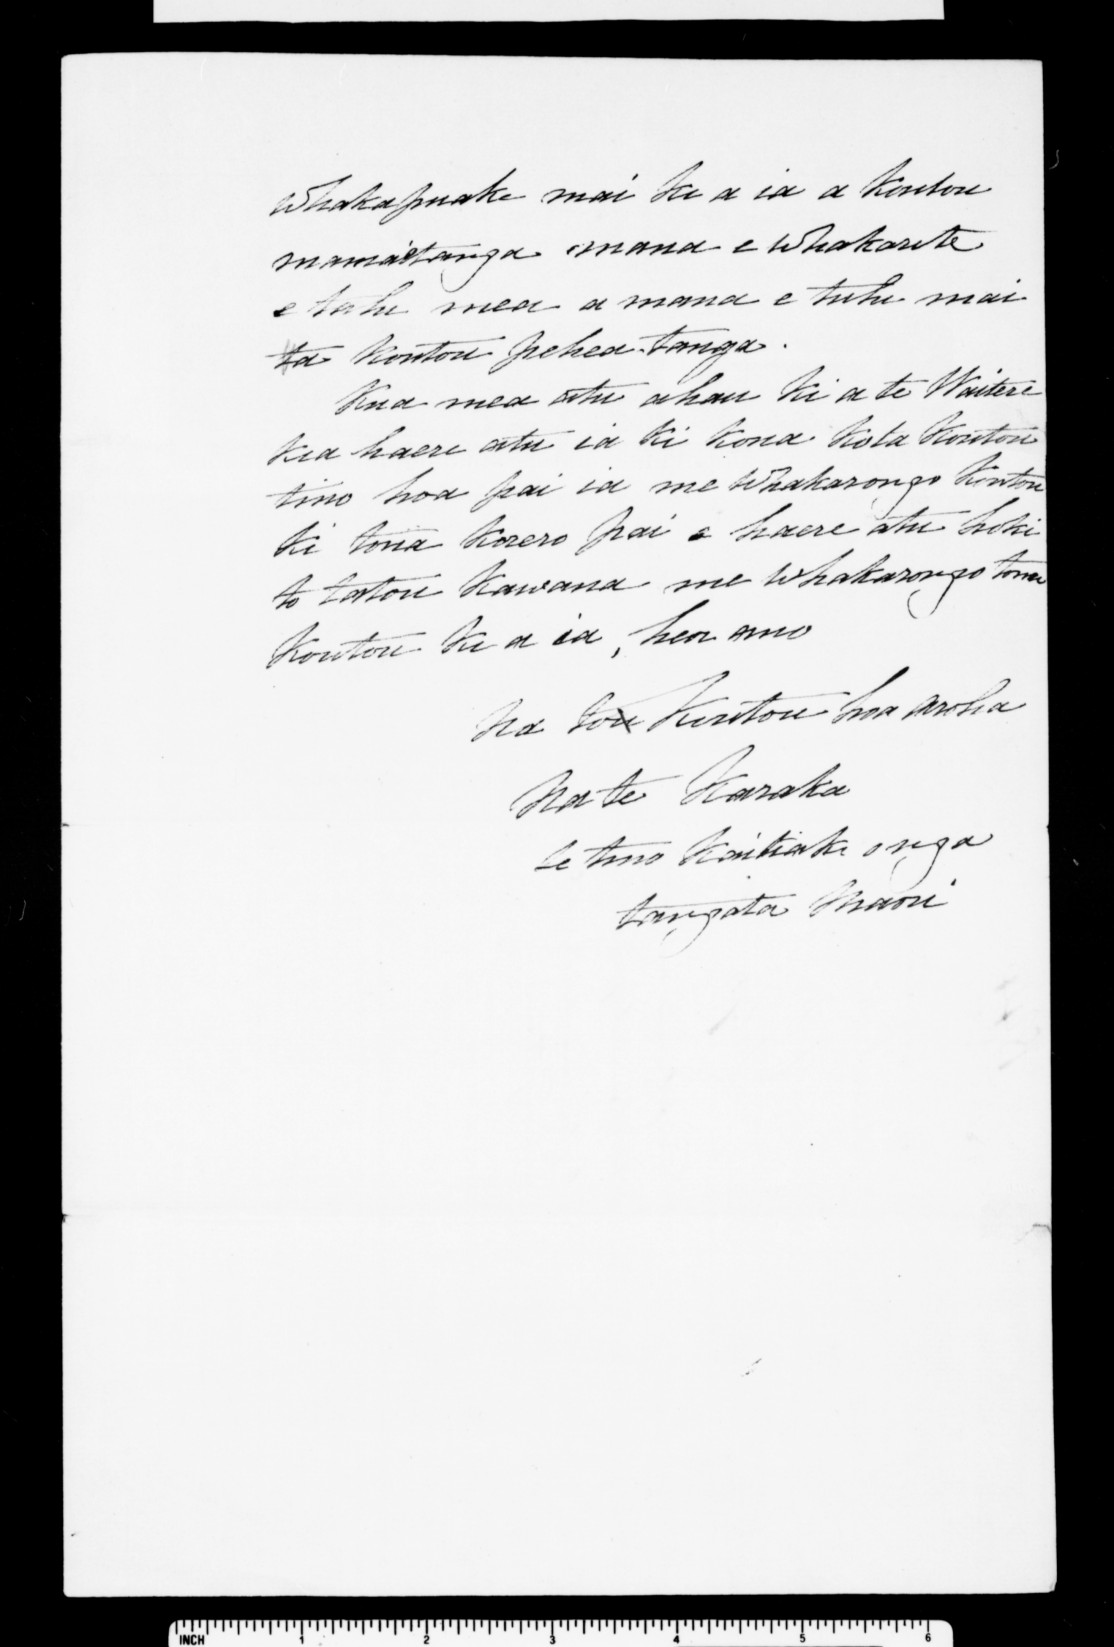 Whakapuake mai ki a ia a Koutou
mamaetanga mana e Whakarite
e tahi mea a mana e tuhi mai
ta Koutou pehea-tanga.
Kua mea atu ahau ki a te Waitere
kia haere atu ia ki kona kota Koutou
tino hoa pai ia me Whakarongo Koutou
ki tona korero pai e haere atu hoki
to tatou Kawana me Whakarongo tonu
Koutou ki a ia, heoi ano
Na tou Koutou hoa aroha
Na te Karaka
te tino Kaitiaki onga
tangata Maori
INCH 1 2 3 4 5 6